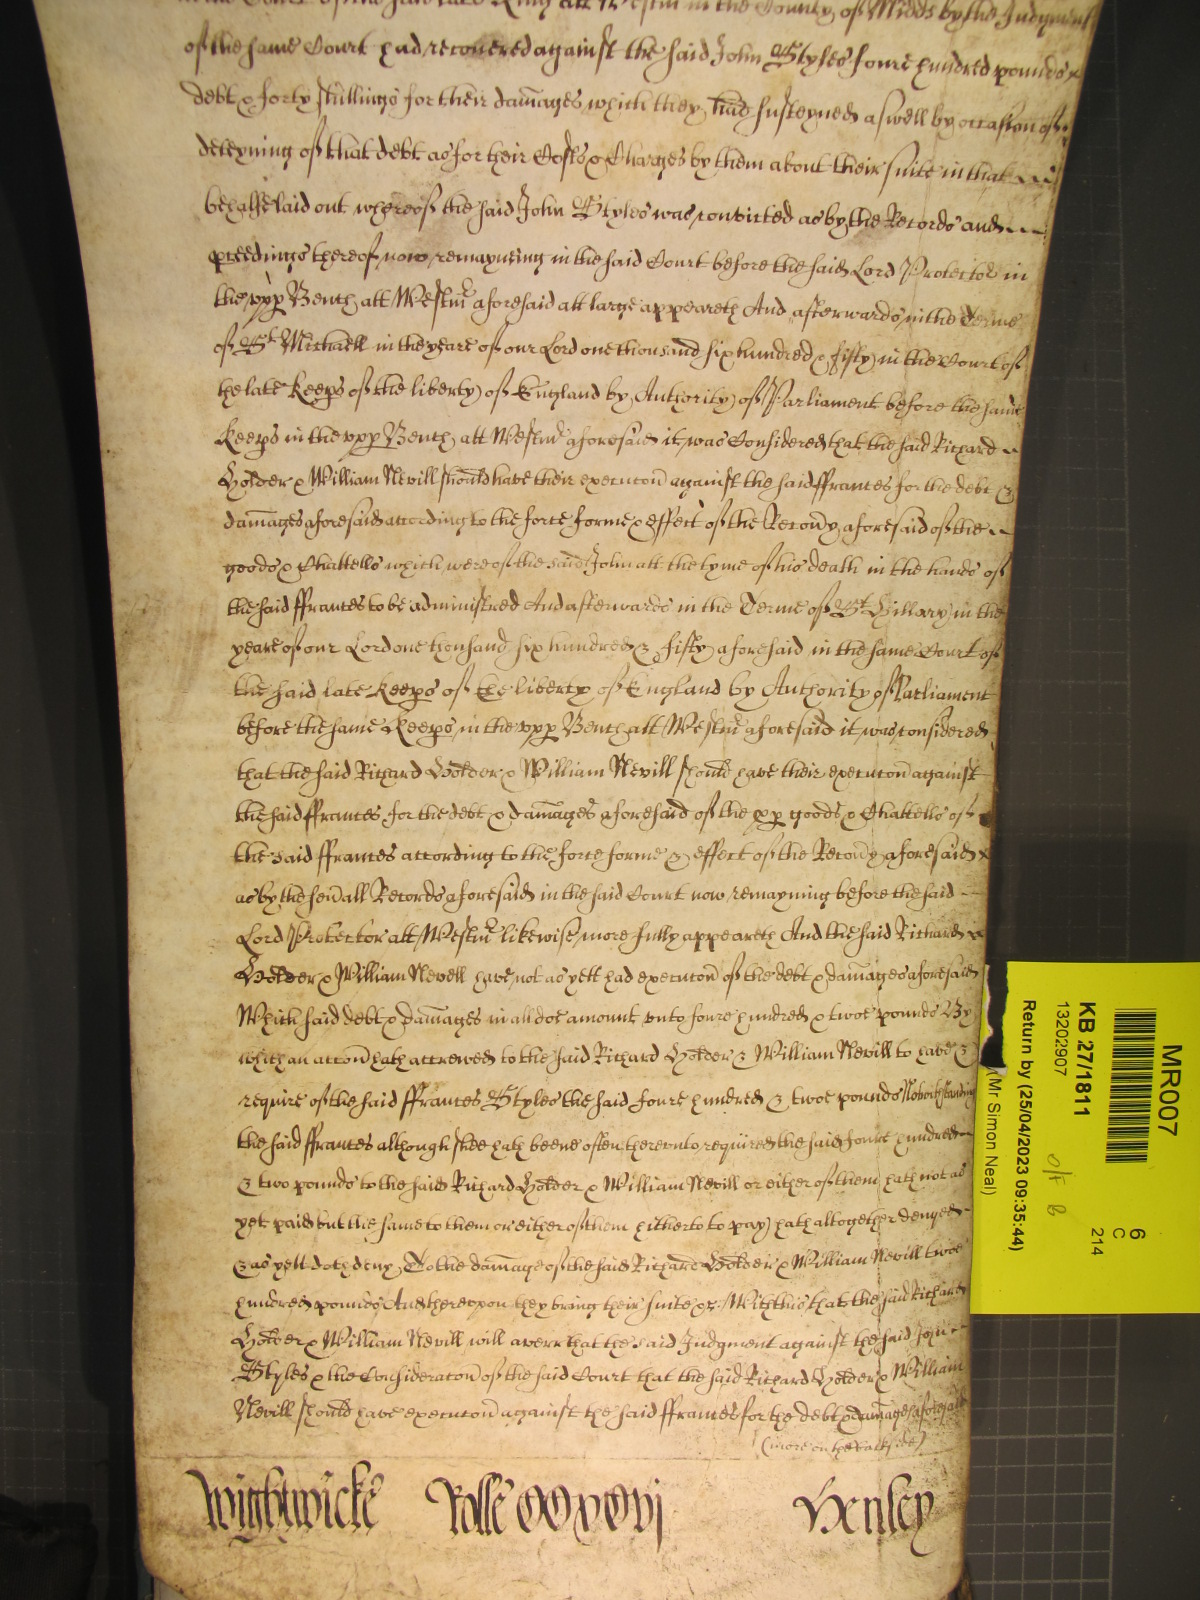 in the Court of the said late King att Westm̃ in the County of Midds by the Judgment
of the same Court had recovered against the said John Styles foure hundred pounds
debt & forty shillings for their dam̃ages which they had susteyned aswell by occasion of
deteyning of that debt as for their Costs & Charges by them about their suite in that
behalfe laid out whereof the said John Styles was convicted as by the Records and
pceedings thereof now remayneing in the said Court before the said Lord Protector in
the vpp Bench att Westm̃ aforesaid att large appeareth And afterwards in the Terme
of St Michaell in the yeare of our Lord one thousand six hundred & fifty in the Court of
the late Keeps of the liberty of England by Authority of Parliament before the same
Keeps in the vpp Bench att Westm̃ aforesaid it was Considered that the said Richard
Holder & William Nevill should have their execucon̄ against the said ffrances for the debt &
dam̃ages aforesaid according to the force forme & effect of the Recovy aforesaid of the
goods & Chattells which were of the said John att the tyme of his death in the hands of
the said ffrances to be administred And afterwards in the Terme of St Hillary in the
yeare of our Lord one thousand six hundred & fifty aforesaid in the same Court of
the said late Keeps of the liberty of England by Authority of Parliament
before the same Keeps in the vpp Bench att Westm̃ aforesaid it was considered
that the said Richard Holder & William Nevill should have their execucon̄ against
the said ffrances for the debt & dam̃ages aforesaid of the pp goods & Chattells of
the said ffrances according to the force forme & effect of the Recovy aforesaid
as by the sev̄all Records aforesaid in the said Court now remayning before the said
Lord Protector att Westm̃ likewise more fully appeareth And the said Richard
Holder & William Nevell have not as yett had execucon̄ of the debt & dam̃ages aforesaid
Which said debt & dam̃ages in all doe amount vnto foure hundred & twoe pounds By
which an accon̄ hath accrewed to the said Richard Holder & William Nevill to have &
require of the said ffrances Styles the said foure hundred & twoe pounds Notwithstanding
the said ffrances although shee hath beene often therevnto required the said foure hundred
& two pounds to the said Richard Holder & William Nevill or either of them hath not as
yet paid but the same to them or either of them hitherto to pay hath altogether denyed
& as yett doth deny To the damage of the said Richard Holder & William Nevill twoe
hundred pounds And therevpon they bring their suite &c. With this that the said Richard
Holder & William Nevill will averr that the said Judgment against the said John
Styles & the Consideracon̄ of the said Court that the said Richard Holder & William
Nevill should have execucon̄ against the said ffrances for the debt & dam̃ages aforesaid
(more on the backside)
Wightwicke Rolle Henley
MR007
6
C
214
KB 27/1811
13202907
Return by (25/04/2023 09:35:44)
(Mr Simon Neal)